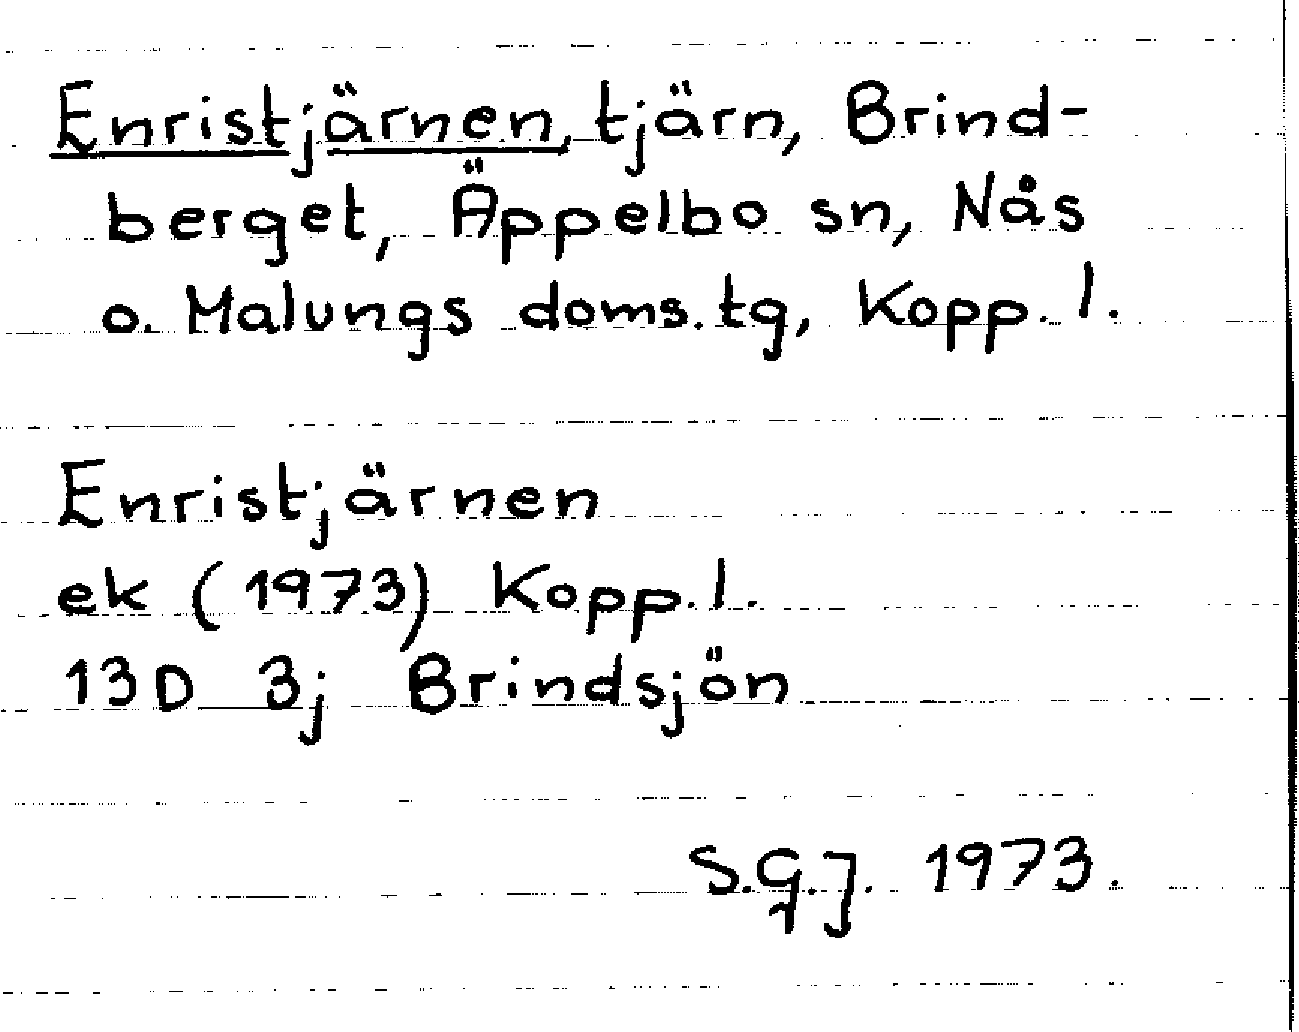 Enristjärnen, tjärn, Brind-
berget, Äppelbo sn, Nås
o. Malungs doms.tg, Kopp. l.
Enristjärnen
ek (1973) Kopp. l.
13D 3j Brindsjön
S.G.J. 1973.